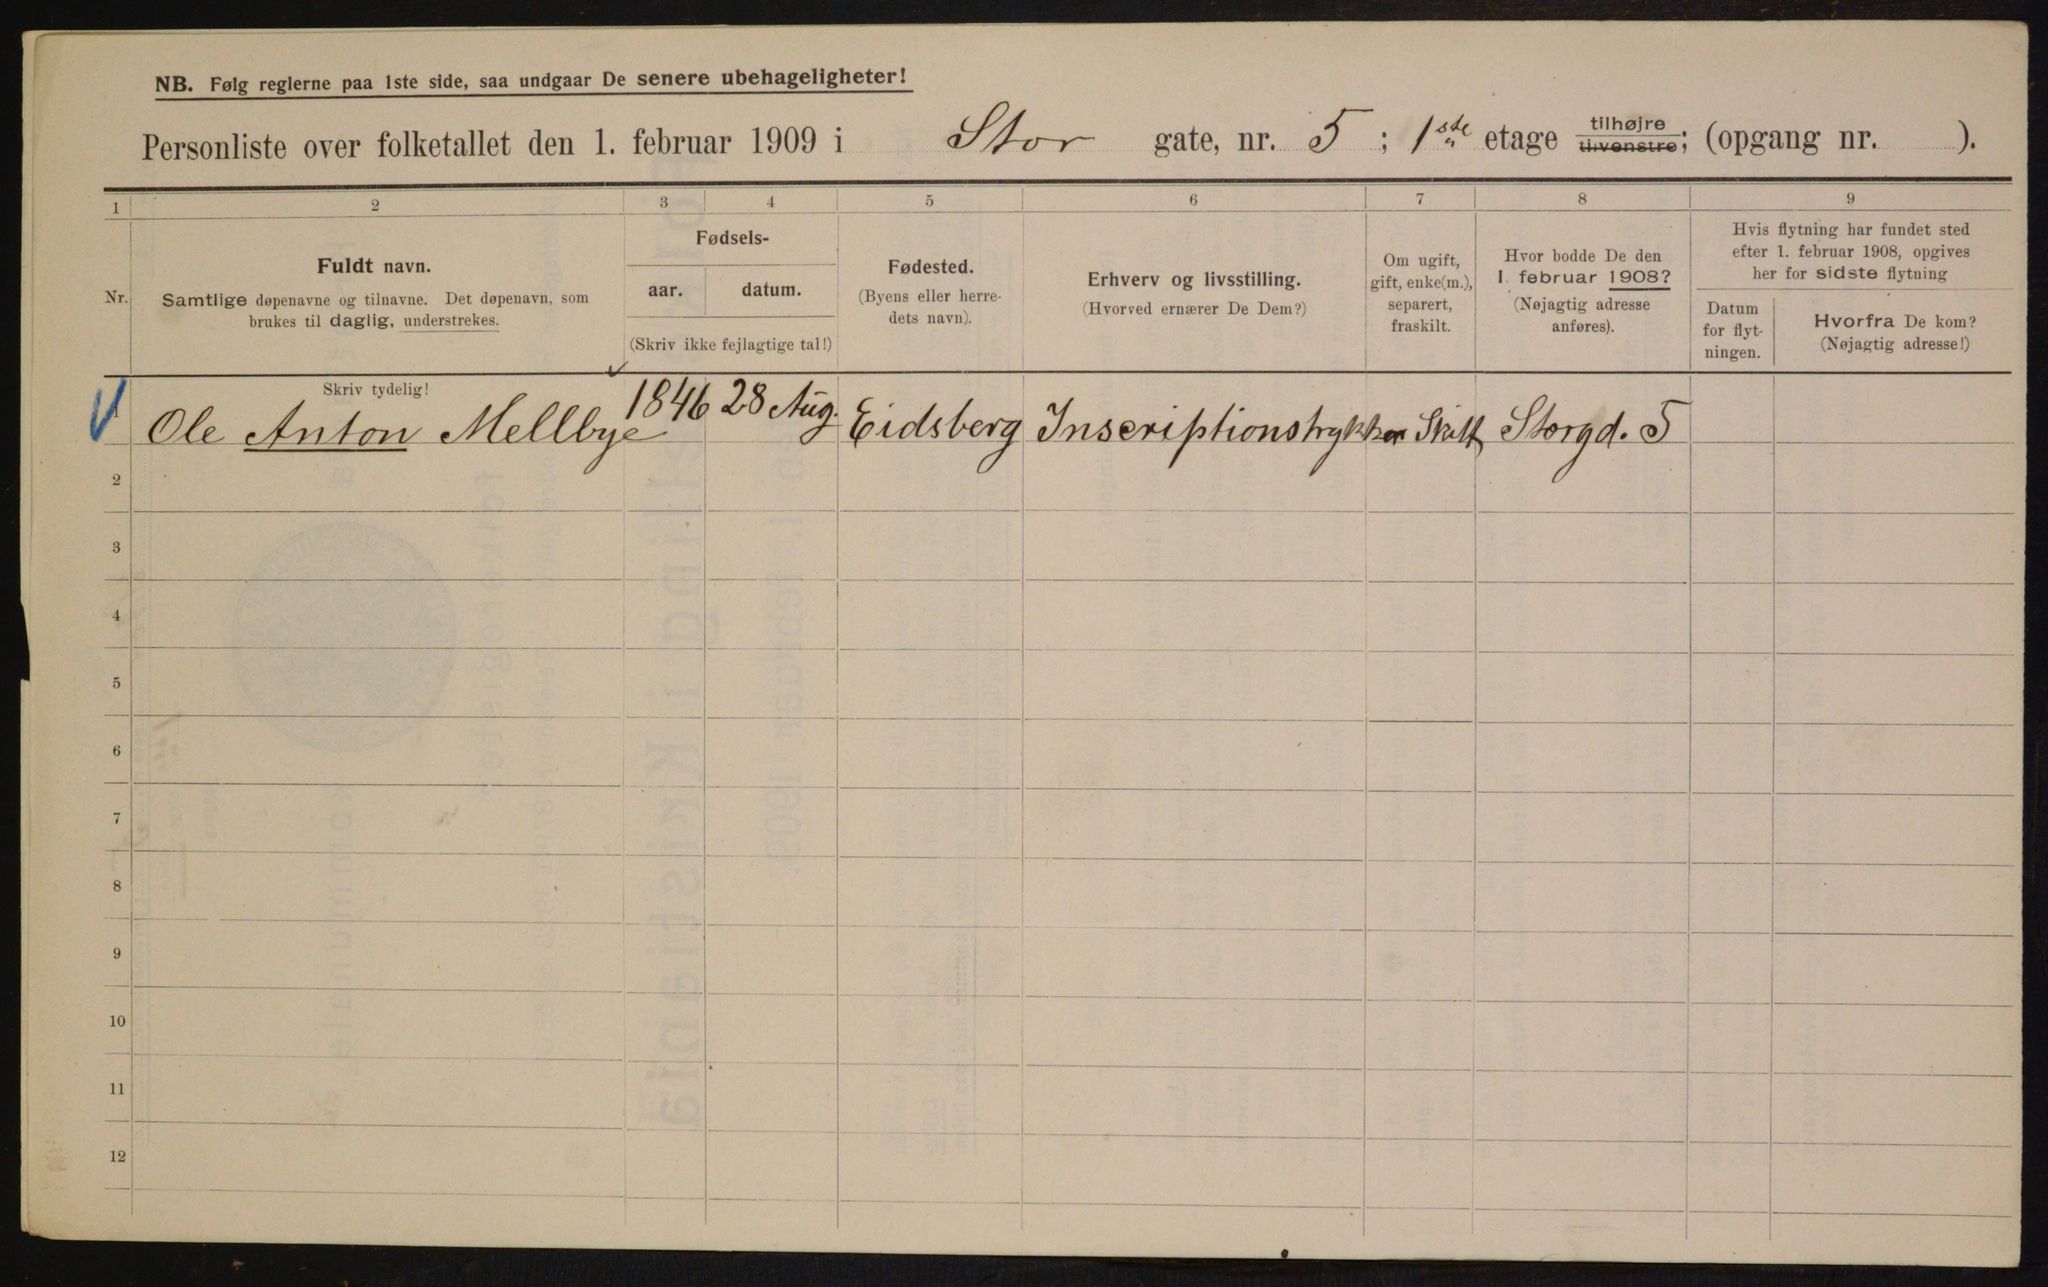 NB. Følg reglerne paa 1ste side, saa undgaar De senere ubehageligheter!
Personliste over folketallet den 1. februar 1909 i Stor gate, nr. 5 ; 1ste etage tilhøjre tilvenstre; (opgang nr. ).
1 2 3 4 5 6 7 8 9
Nr.
Fuldt navn.
Samtlige døpenavne og tilnavne. Det døpenavn, som
brukes til daglig, understrekes.
Fødsels-
aar. datum.
(Skriv ikke fejlagtige tal!)
Fødested.
(Byens eller herre-
dets navn).
Erhverv og livsstilling.
(Hvorved ernærer De Dem?)
Om ugift,
gift, enke(m.),
separert,
fraskilt.
Hvor bodde De den
1. februar 1908?
(Nøjagtig adresse
anføres).
Hvis flytning har fundet sted
efter 1. februar 1908, opgives
her for sidste flytning
Datum
for flyt-
ningen.
Hvorfra De kom?
(Nøjagtig adresse!)
Skriv tydelig!
Ole Anton Mellbye 1846 28 Aug. Eidsberg Inscriptionstrykker Skilt Storgd. 5
2
3
4
5
6
7
8
9
10
11
12